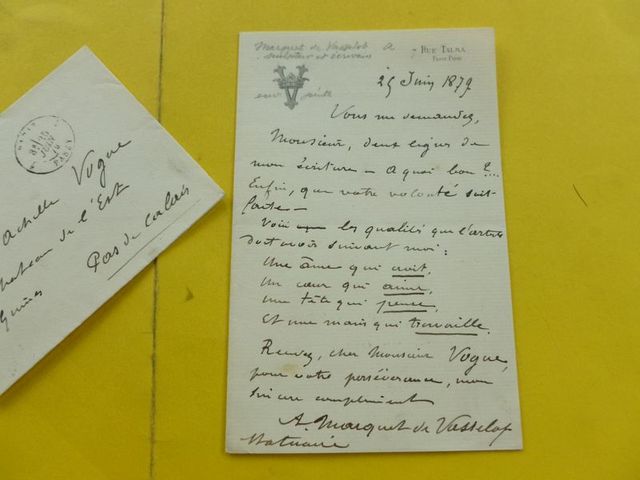 Marquet de Vasselot A
sculpteur et écrivain
7 Rue Talma
Passy Paris
25 Juin 1879
Vous me demandez,
Monsieur, deux lignes de
mon écriture – a quoi bon ?...
Enfin, que votre volonté soit
faite –
Voici les qualités que l'artiste
doit avoir suivant moi :
Une âme qui croit,
Un cœur qui aime,
une tête qui pense,
Et une main qui travaille.
Recevez, cher Monsieur Vogue,
pour votre persévérance, mon
sincère compliment
A. Marquet de Vasselot
Statuaire
Achille Vogue
Chateau de l'Est
Guînes
Pas de Calais